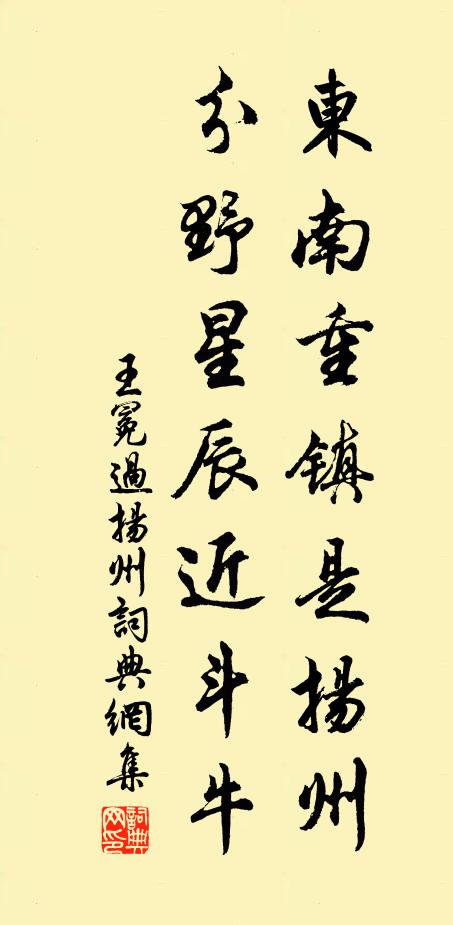 東南重鎮是揚州
分野星辰近斗牛
王冕過揚州詞典網集
詞典網印